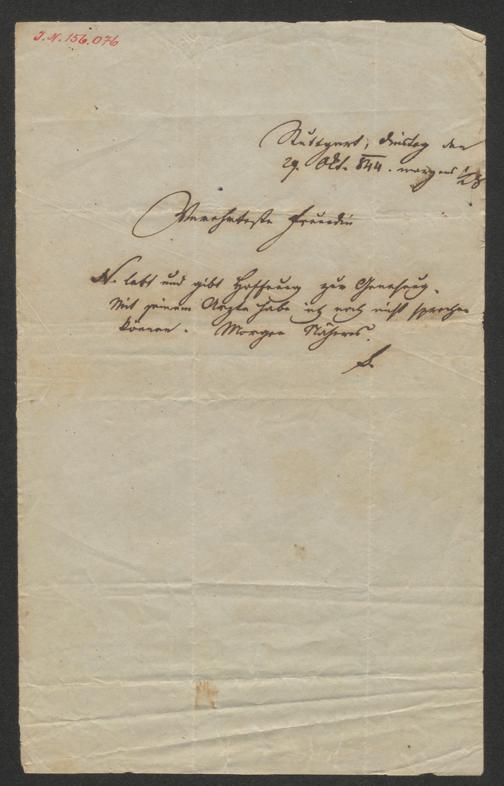 I.N. 156.076
Stuttgart, Dinstag den
29. Okt. 844. morgens ½8
Verehrteste Freundin
N. lebt und gibt Hoffnung zur Genesung.
Mit seinem Arzte habe ich noch nicht sprechen
können. Morgen Näheres.